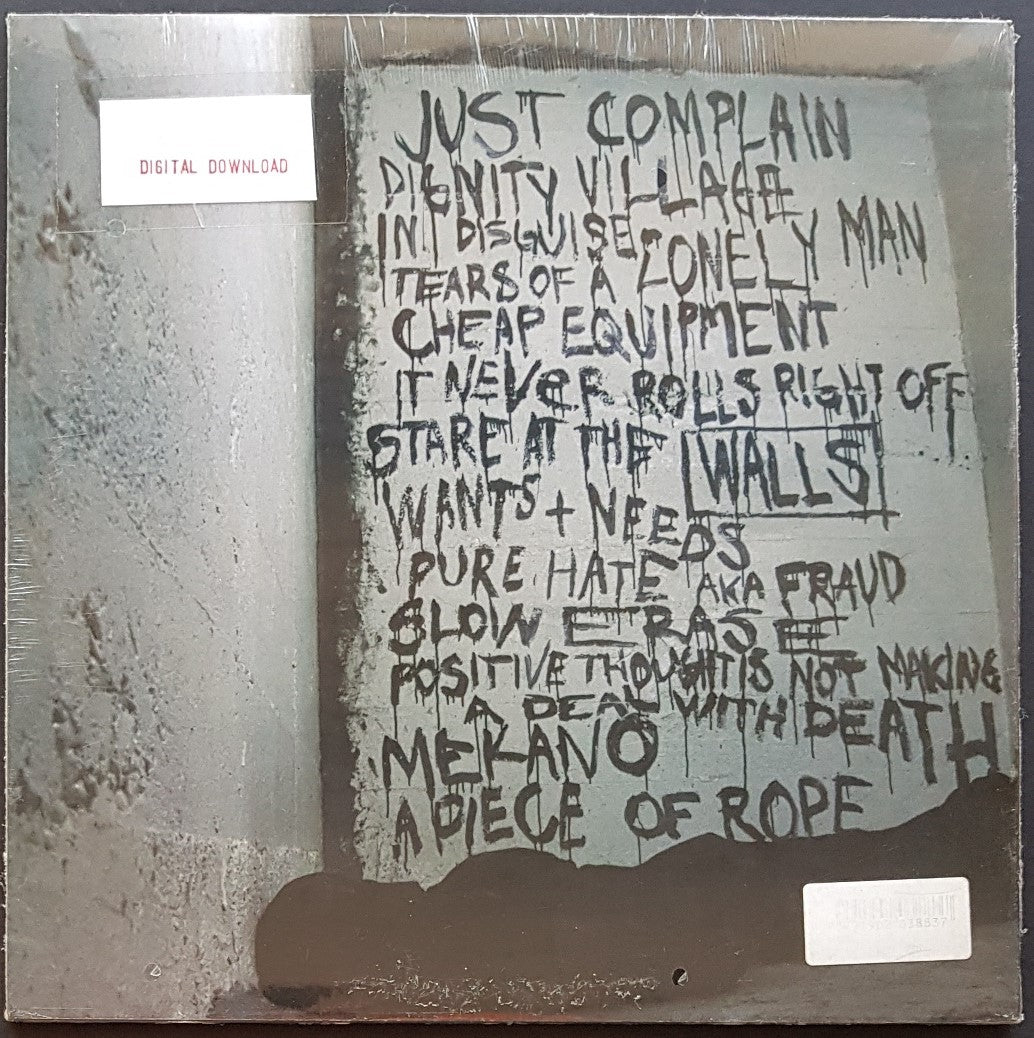 DIGITAL DOWNLOAD
JUST COMPLAIN
DIGNITY VILLAGE
IN DISGUISE
TEARS OF A LONELY MAN
CHEAP EQUIPMENT
IT NEVER ROLLS RIGHT OFF
STARE AT THE WALLS
WANTS + NEEDS
PURE HATE AKA FRAUD
SLOW ERASE
POSITIVE THOUGHT IS NOT MAKING
A DEAL WITH DEATH
MEKANO
A PIECE OF ROPE